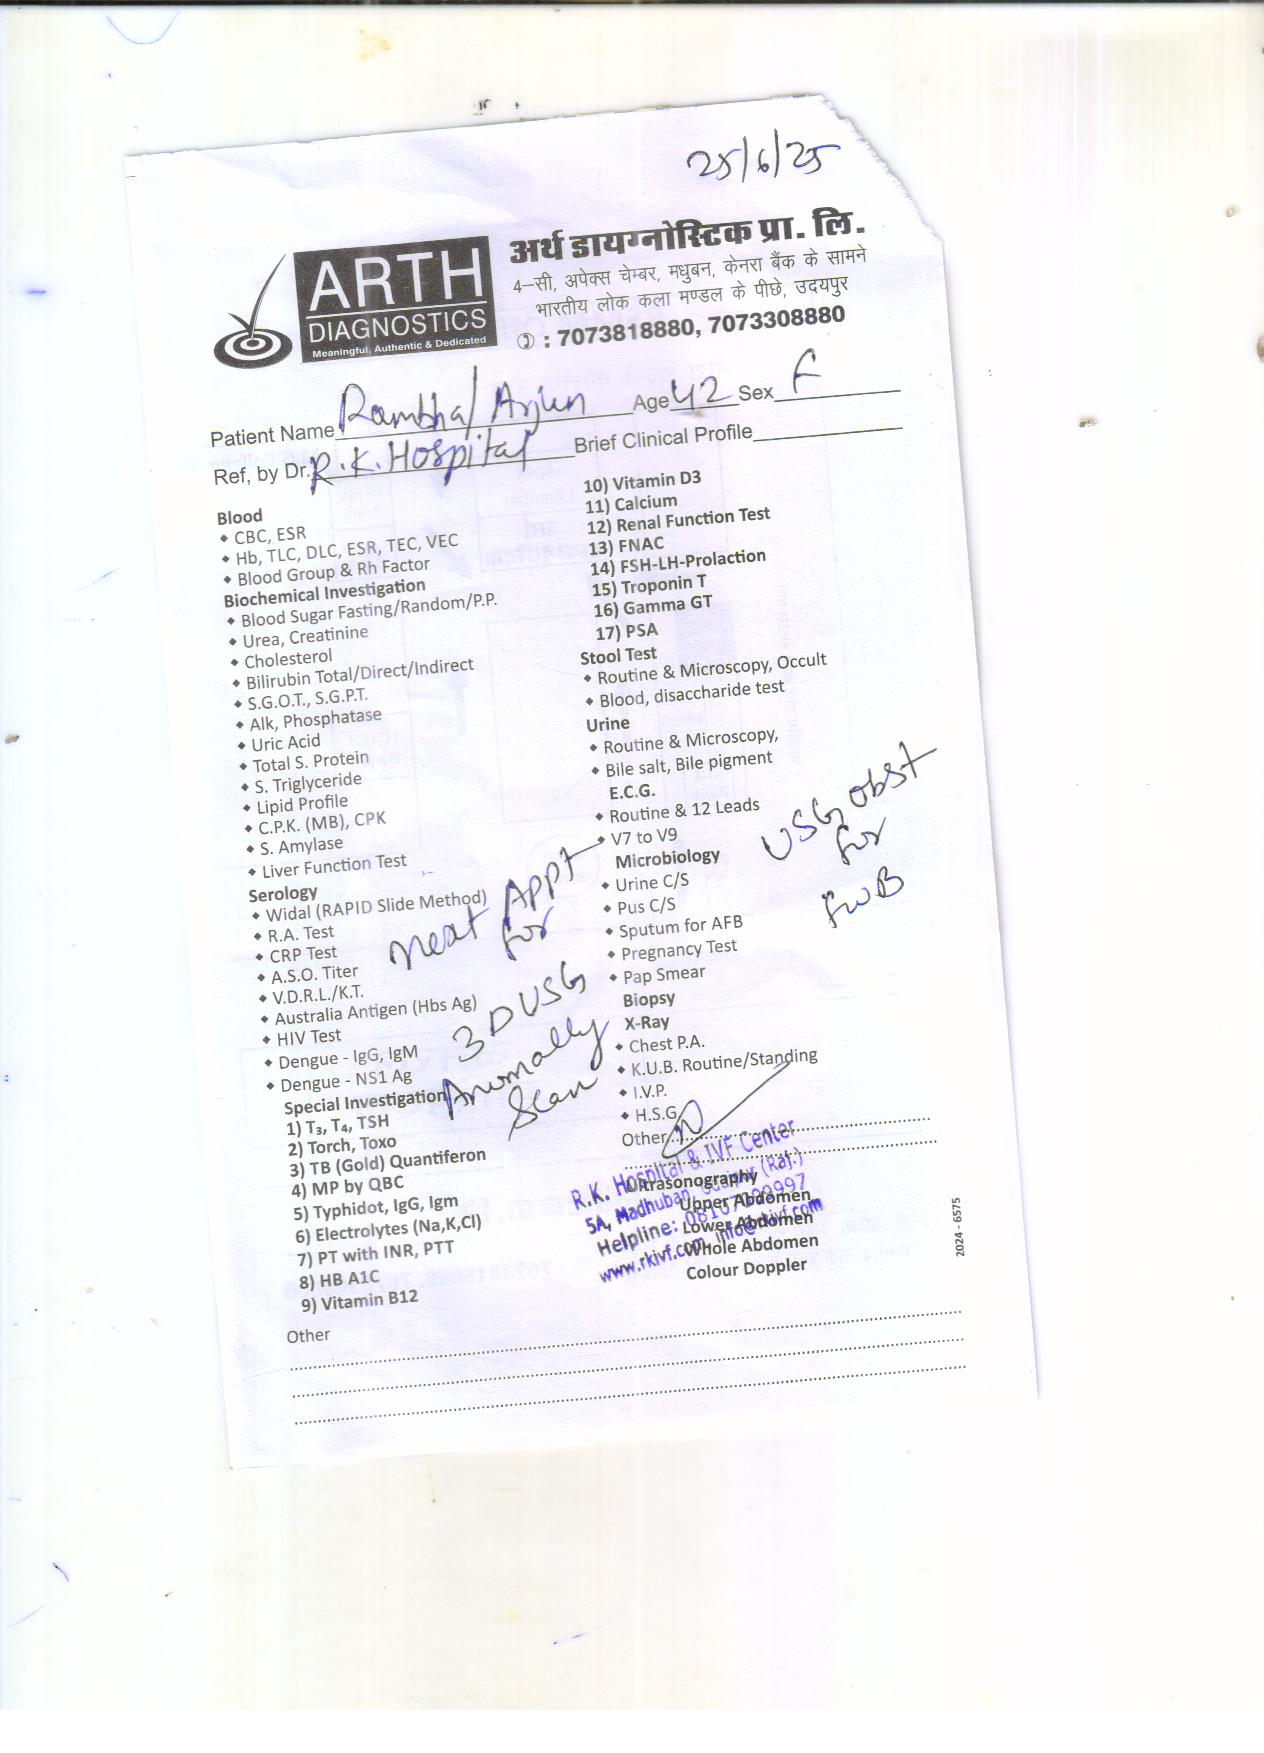 25/6/25
ARTH
DIAGNOSTICS
Meaningful, Authentic & Dedicated
अर्थ डायग्नोस्टिक प्रा. लि.
4–सी, अपेक्स चेम्बर, मधुबन, केनरा बैंक के सामने
भारतीय लोक कला मण्डल के पीछे, उदयपुर
: 7073818880, 7073308880
Patient Name Rambha/Arjun Age 42 Sex F
Ref, by Dr. R.K. Hospital Brief Clinical Profile
Blood
CBC, ESR
Hb, TLC, DLC, ESR, TEC, VEC
Blood Group & Rh Factor
Biochemical Investigation
Blood Sugar Fasting/Random/P.P.
Urea, Creatinine
Cholesterol
Bilirubin Total/Direct/Indirect
S.G.O.T., S.G.P.T.
Alk, Phosphatase
Uric Acid
Total S. Protein
S. Triglyceride
Lipid Profile
C.P.K. (MB), CPK
S. Amylase
Liver Function Test
Serology
Widal (RAPID Slide Method)
R.A. Test
CRP Test
A.S.O. Titer
V.D.R.L./K.T.
Australia Antigen (Hbs Ag)
HIV Test
Dengue - IgG, IgM
Dengue - NS1 Ag
Special Investigation
1) T₃, T₄, TSH
2) Torch, Toxo
3) TB (Gold) Quantiferon
4) MP by QBC
5) Typhidot, IgG, Igm
6) Electrolytes (Na,K,Cl)
7) PT with INR, PTT
8) HB A1C
9) Vitamin B12
Other
next APPt
for
3D USG
Anomally
Scan
10) Vitamin D3
11) Calcium
12) Renal Function Test
13) FNAC
14) FSH-LH-Prolaction
15) Troponin T
16) Gamma GT
17) PSA
Stool Test
Routine & Microscopy, Occult
Blood, disaccharide test
Urine
Routine & Microscopy,
Bile salt, Bile pigment
E.C.G.
Routine & 12 Leads
V7 to V9
Microbiology
Urine C/S
Pus C/S
Sputum for AFB
Pregnancy Test
Pap Smear
Biopsy
X-Ray
Chest P.A.
K.U.B. Routine/Standing
I.V.P.
H.S.G.
Other
Ultrasonography
Upper Abdomen
Lower Abdomen
Whole Abdomen
Colour Doppler
USG Obst
for
FWB
R.K. Hospital & IVF Center
5A, Madhuban, Udaipur (Raj.)
Helpline:
www.rkivf.com, info@rkivf.com
2024 - 6575